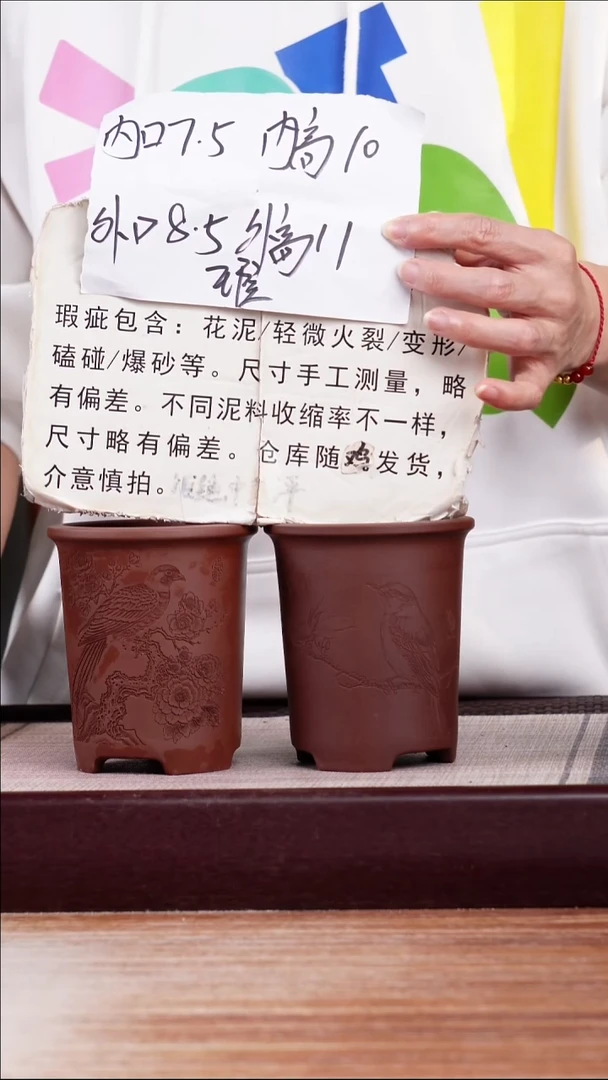 内口7.5 内高10
外口8.5 外高11
瑕疵包含：花泥/轻微火裂/变形/
磕碰/爆砂等。尺寸手工测量，略
有偏差。不同泥料收缩率不一样，
尺寸略有偏差。仓库随鸡发货，
介意慎拍。